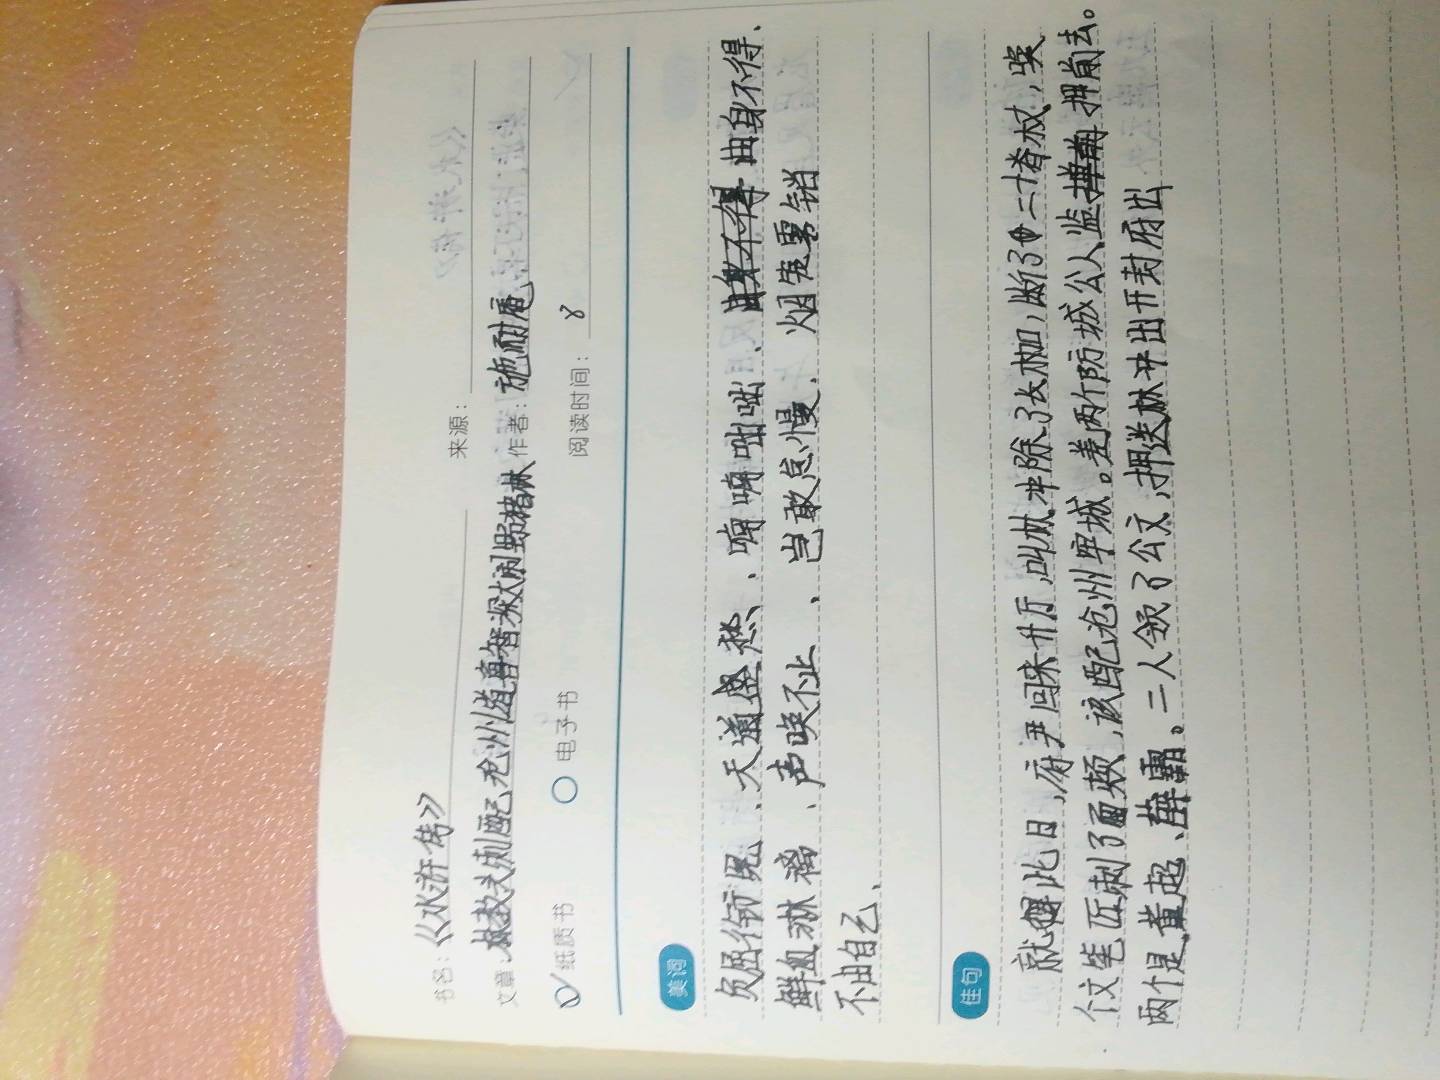 书名：《水浒传》 来源：
文章：林教头刺配沧州道鲁智深大闹野猪林 作者：施耐庵
纸质书 电子书 阅读时间：8
美词
负屈衔冤、天道盛热、喃喃咄咄、由身不得、由身不得、
鲜血淋漓、声唤不止、岂敢怠慢、烟笼雾锁
不由自己、
佳句
就此日，府尹回来升厅，叫林冲除了长枷，断了二十脊杖，唤
个文笔匠刺了面颊，该配沧州牢城。差两个防城公人监押前去。
两个是董超、薛霸。二人领了公文，押送林冲出开封府出